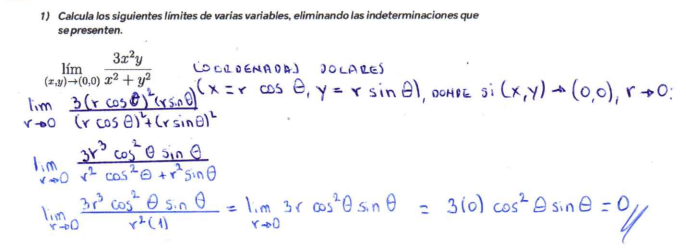 1) Calcula los siguientes límites de varias variables, eliminando las indeterminaciones que
se presenten.
lím (x,y)→(0,0) 3x²y / x² + y² COORDENADAS POLARES
(x = r cos θ, y = r sin θ), DONDE si (x,y) → (0,0), r → 0:
lim r→0 3(r cos θ)² (r sin θ) / (r cos θ)² + (r sin θ)²
lim r→0 3r³ cos² θ sin θ / r² cos² θ + r² sin θ
lim r→0 3r³ cos² θ sin θ / r² (1) = lim r→0 3r cos² θ sin θ = 3(0) cos² θ sin θ = 0